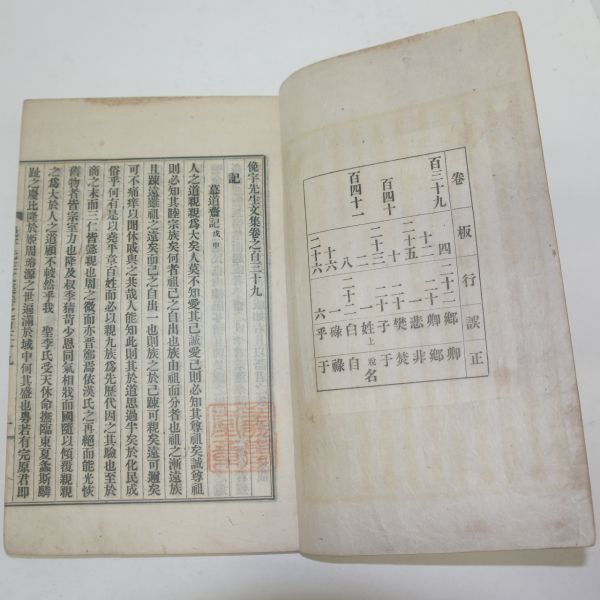 卷 板 行 誤 正
百三十九 四 二十二 鄉 卿
十二 二十 卿 鄉
二十五 一 悲 非
百四十 十 樊 焚
二十三 二十 子 于
百四十一 二 一 姓 上脫名
八 二十二
十六 一
二十六 六 乎 于
俛宇先生文集卷之百三十九
記
墓道齋記 戊申
人之道親親爲大矣人莫不知愛其己誠愛己則必知其尊祖矣誠尊祖
則必知其睦宗族矣何者祖己之自出也族由祖而分者也祖之漸遠族
且踈遠雖祖之遠矣而己之自出一也則族之於己踈可親矣遠可邇矣
可不痛痒以閒休戚與之共哉人能知此則其於道思過半矣於化民成
俗乎何有是以堯平章百姓而必以親九族爲先歷代因之其驗也至於
商之末而三仁皆懿親也周之微而亦晋鄭焉依漢氏之再絕而能光恢
舊物者皆宗室力也降及叔季猜苛少恩同氣相戕而國隨以傾覆親親
之爲大於人之道顧不較然乎我 聖李氏受天休命撫臨東夏螽斯麟
趾之慶比隆於姬周勝源之世遍滿於域中何其盛也粤若有完原君即